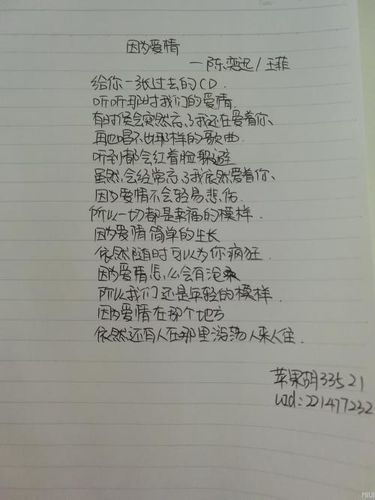 因为爱情
—陈奕迅/王菲
给你一张过去的CD
听听那时我们的爱情
有时候会突然忘了我还在爱着你
再也唱不出那样的歌曲
听到都会红着脸躲避
虽然会经常忘了我依然爱着你
因为爱情不会轻易悲伤
所以一切都是幸福的模样
因为爱情简单的生长
依然随时可以为你疯狂
因为爱情怎么会有沧桑
所以我们还是年轻的模样
因为爱情在那个地方
依然还有人在那里游荡人来人往
苹果胡33521
uid:221477232